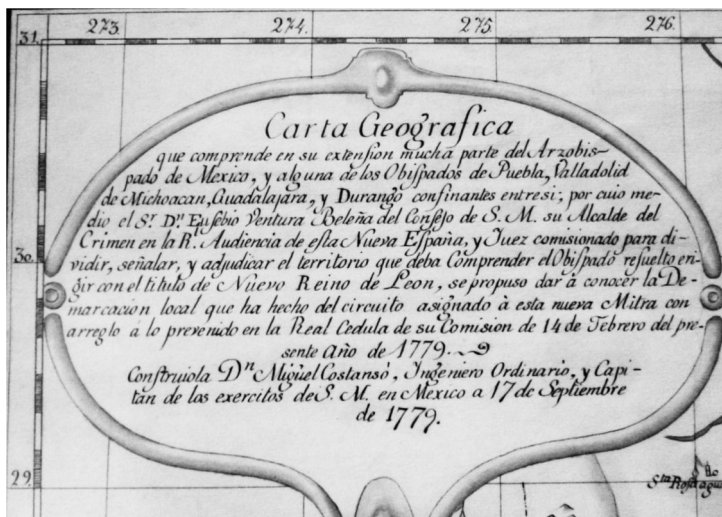 273. 274. 275. 276.
31.
Carta Geografica
que comprende en su extension mucha parte del Arzobis-
pado de Mexico, y alguna de los Obispados de Puebla, Valladolid
de Michoacan, Guadalajara, y Durango confinantes entresi; por cuio me-
dio el S.r D.n Eusebio Ventura Beleña del Consejo de S. M. su Alcalde del
Crimen en la R.l Audiencia de esta Nueva España, y Juez comisionado para di-
vidir, señalar, y adjudicar el territorio que deba Comprender el Obispado resuelto eri-
gir con el titulo de Nuevo Reino de Leon, se propuso dar à conocer la De-
marcacion local que ha hecho del circuito asignado à esta nueva Mitra con
arreglo à lo prevenido en la Real Cedula de su Comision de 14 de Febrero del pre-
sente Año de 1779.
Construiola D.n Miguel Costansó, Ingeniero Ordinario, y Capi-
tan de los exercitos de S. M. en Mexico a 17 de Septiembre
de 1779.
30.
29.
S.ta Rosa